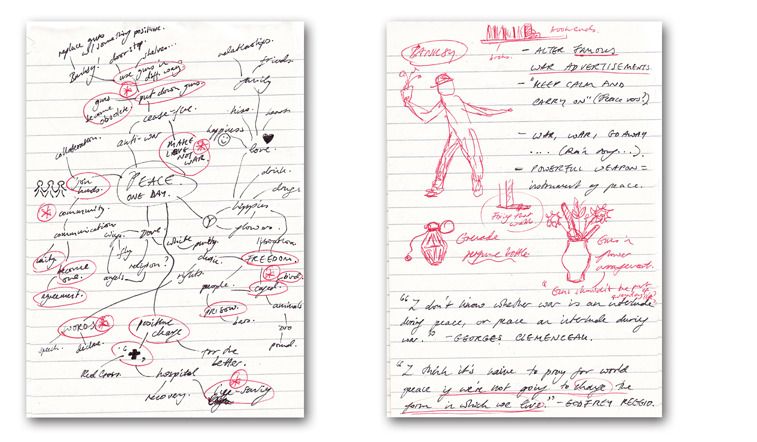 replace guns
w/ something positive.
Banksy.
doorstop.
shelves...
use guns in
diff ways
put down guns.
guns
become
obsolete
cease-fire.
anti-war
MAKE
LOVE NOT
WAR.
collaboration.
join
hands.
community.
communication
unity
become
one.
agreement.
PEACE
ONE DAY.
relationships.
friends.
family
kiss.
hearts
happiness
love.
drink.
drugs
hippies
flowers.
dove
wings.
fly
religion?
angels
white
purity
rights.
people
FREEDOM.
birds
caged
animals
zoo
pound.
PRISON.
bars.
WORDS
speech.
positive
change
for the
better.
Red Cross.
hospital
recovery.
life-saving
bookends.
books.
BANKSY
- ALTER FAMOUS
WAR ADVERTISEMENTS.
- "KEEP CALM AND
CARRY ON" (Peace vers?)
- WAR, WAR, GO AWAY
.... (Rain song...).
- POWERFUL WEAPON =
instrument of peace.
Grenade
perfume bottle
Guns in
flower
arrangement.
"I don't know whether war is an interlude
during peace, or peace an interlude during
war." - GEORGES CLEMENCEAU.
"I think it's naive to pray for world
peace if we're not going to change the
form in which we live." - GODFREY REGGIO.